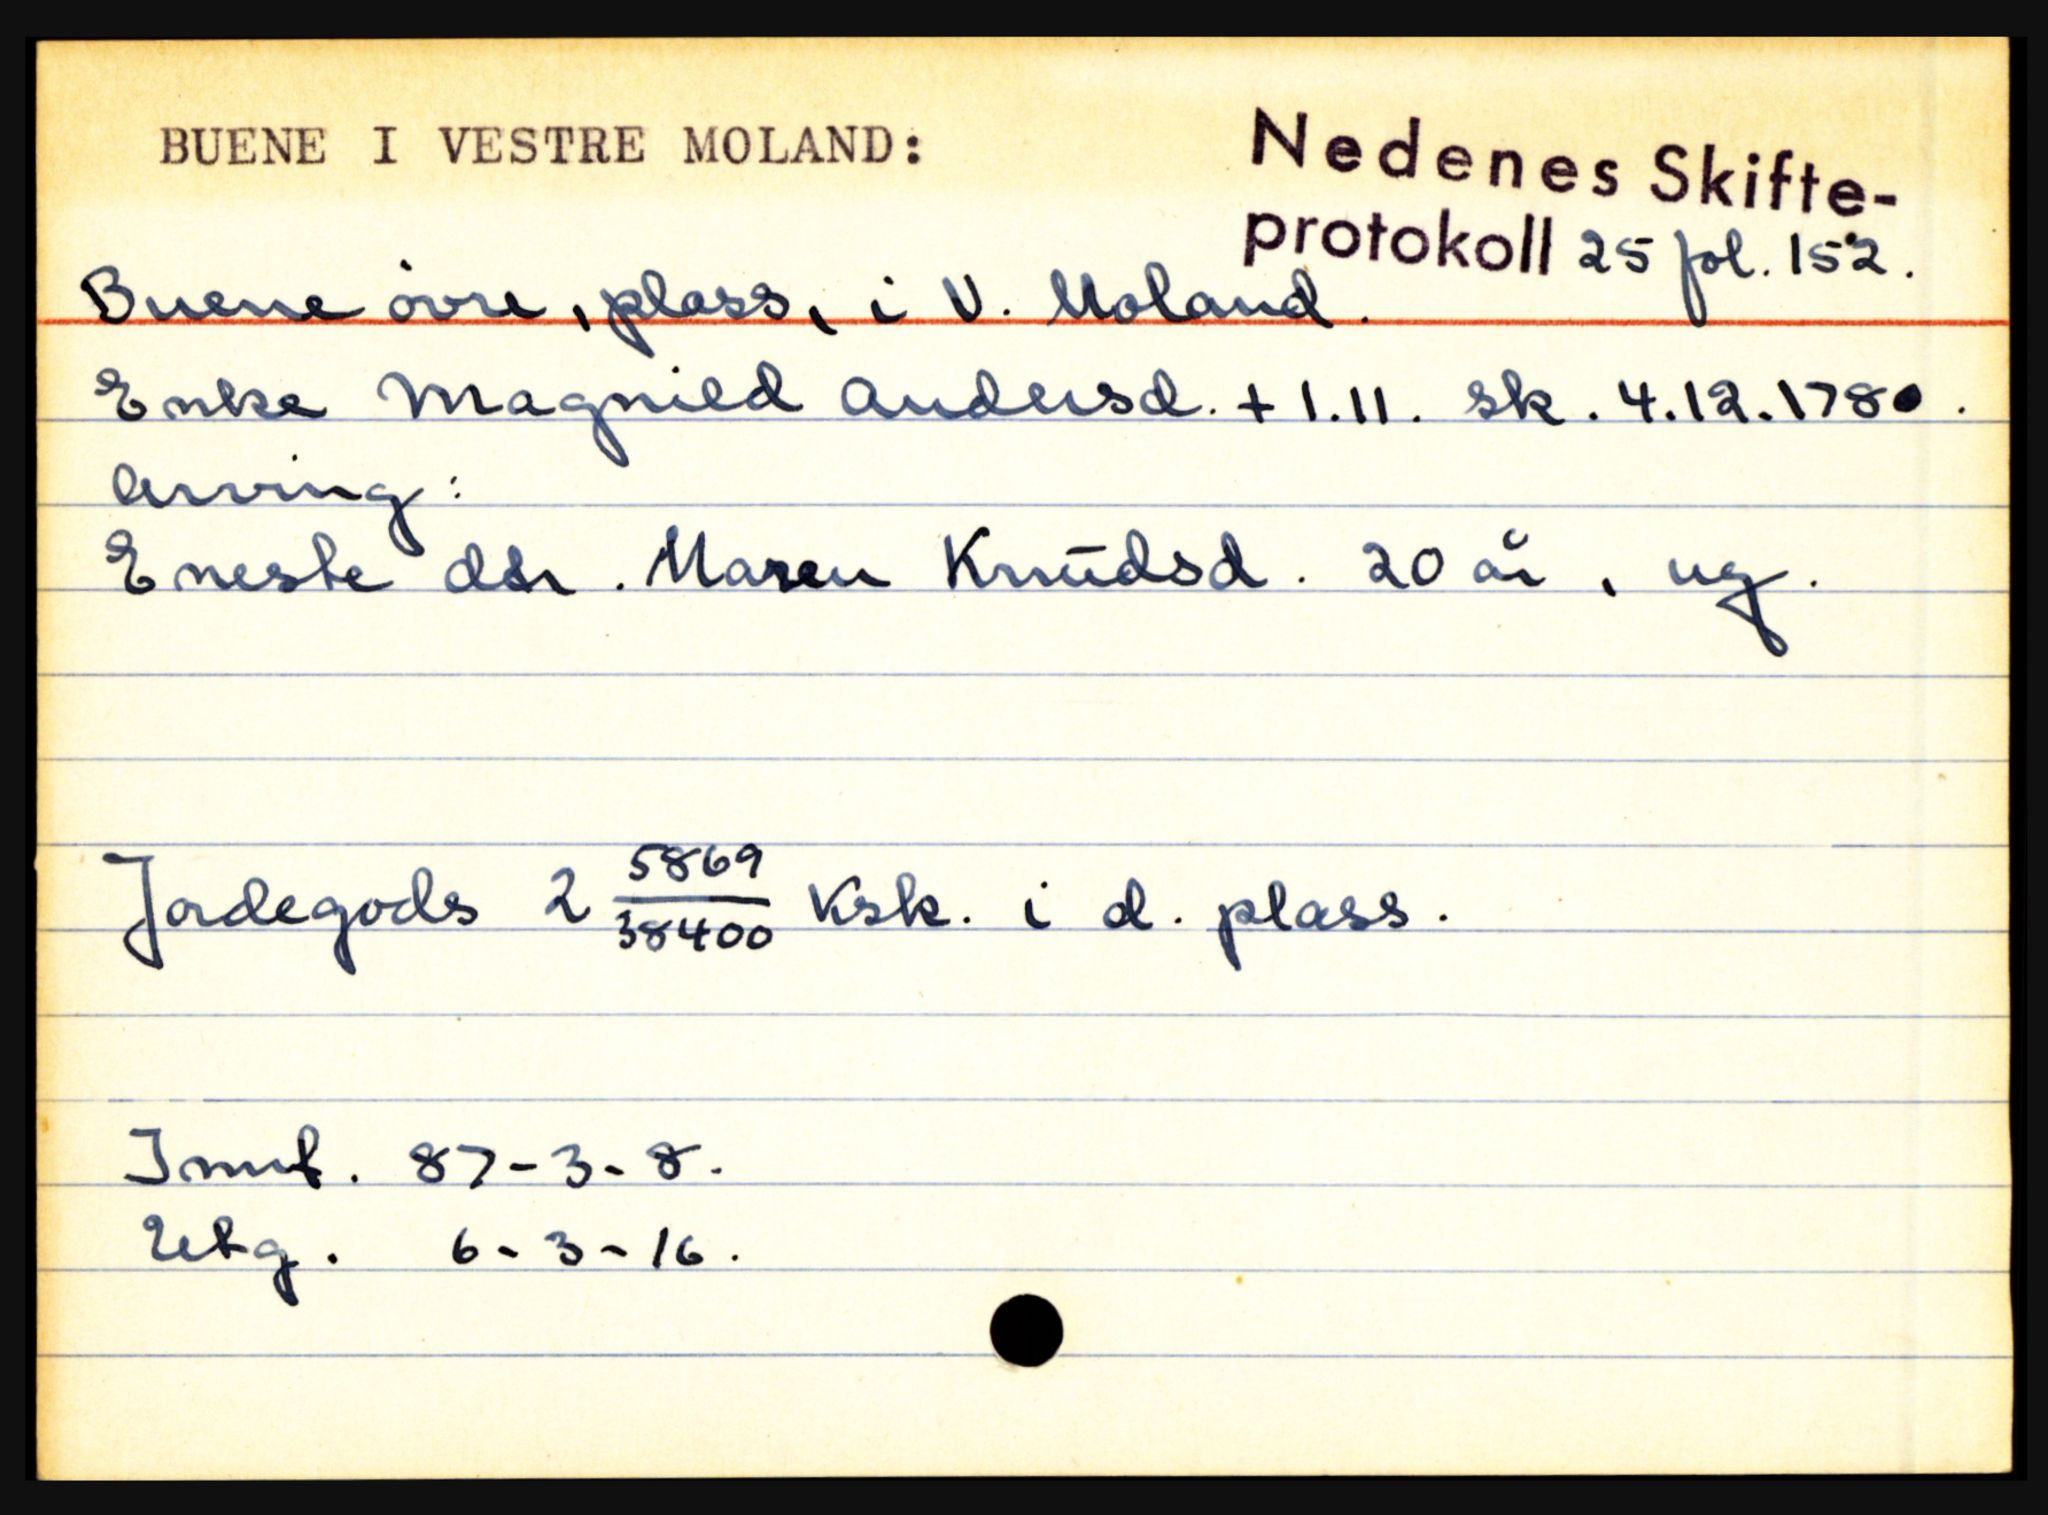 BUENE I VESTRE MOLAND:
Nedenes Skifte-
protokoll 25 fol. 152.
Buene övre, plass, i V. Moland.
Enke Magnild Andersd. + 1.11. sk. 4.12.1780.
Arving:
Eneste dtr. Maren Knudsd. 20 år, ug.
Jordegods 2 5869/38400 Ksk. i d. plass.
Innt. 87-3-8.
Utg. 6-3-16.